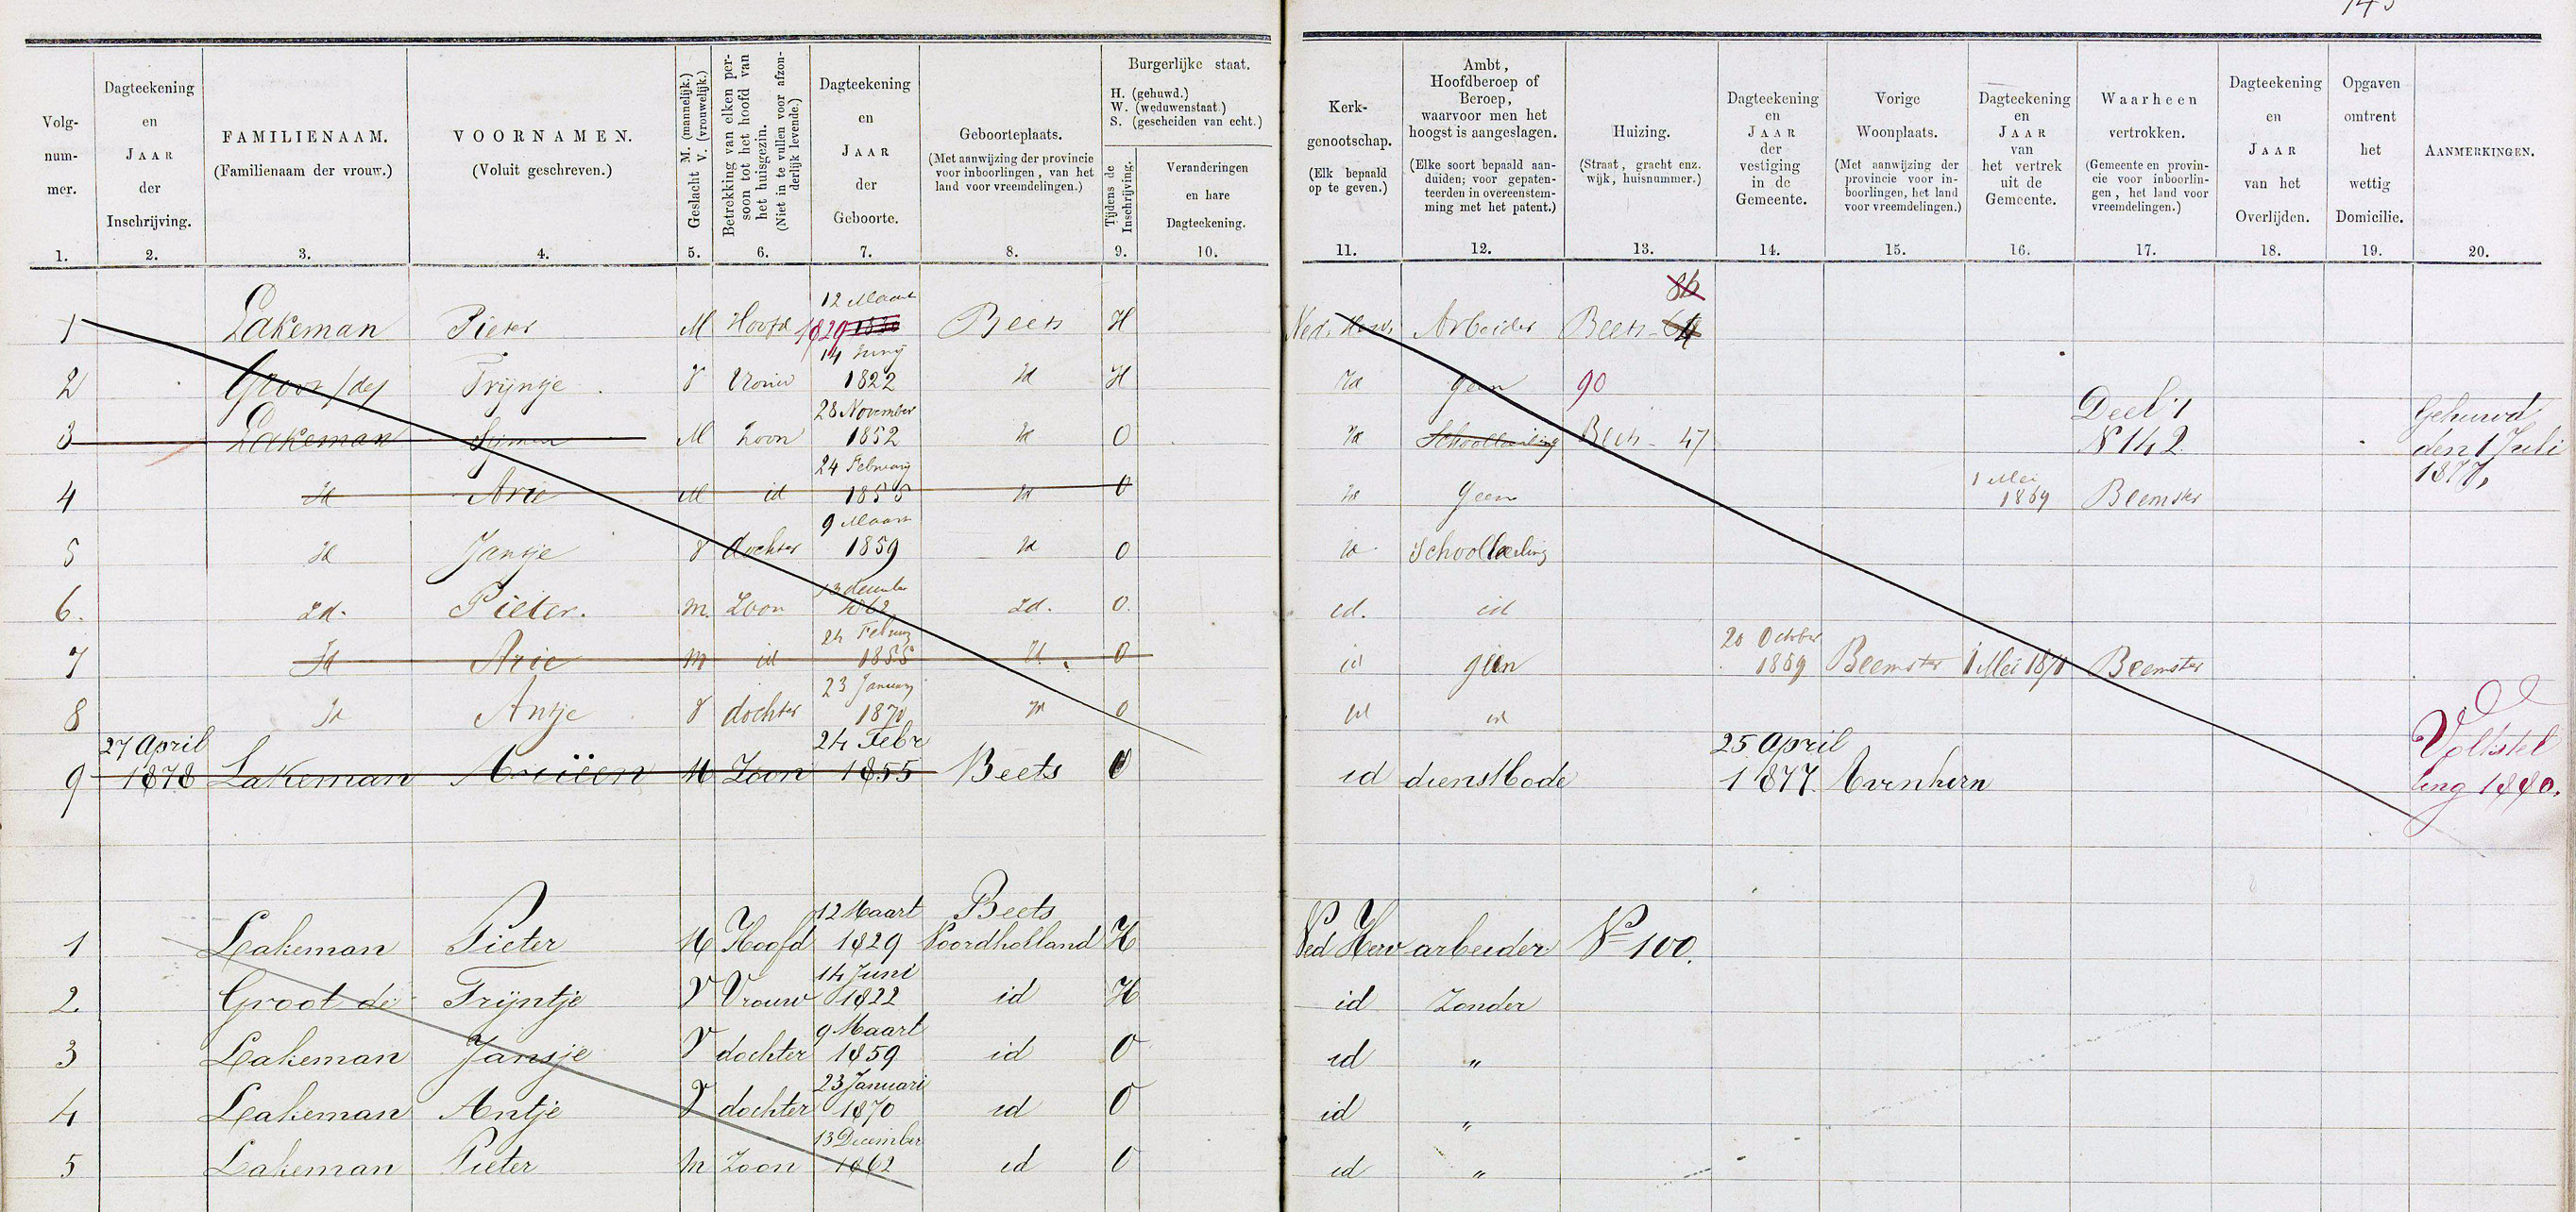 145
Volg-
num-
mer.
1.
Dagteekening
en
JAAR
der
Inschrijving.
2.
FAMILIENAAM.
(Familienaam der vrouw.)
3.
VOORNAMEN.
(Voluit geschreven.)
4.
Geslacht M. (mannelijk.)
V. (vrouwelijk.)
5.
Betrekking van elken per-
soon tot het hoofd van
het huisgezin.
(Niet in te vullen voor afzon-
derlijk levende.)
6.
Dagteekening
en
JAAR
der
Geboorte.
7.
Geboorteplaats.
(Met aanwijzing der provincie
voor inboorlingen, van het
land voor vreemdelingen.)
8.
Burgerlijke staat.
H. (gehuwd.)
W. (weduwenstaat.)
S. (gescheiden van echt.)
Tijdens de
Inschrijving.
9.
Veranderingen
en hare
Dagteekening.
10.
Kerk-
genootschap.
(Elk bepaald
op te geven.)
11.
Ambt,
Hoofdberoep of
Beroep,
waarvoor men het
hoogst is aangeslagen.
(Elke soort bepaald aan-
duiden; voor gepaten-
teerden in overeenstem-
ming met het patent.)
12.
Huizing.
(Straat, gracht enz.
wijk, huisnummer.)
13.
Dagteekening
en
JAAR
der
vestiging
in de
Gemeente.
14.
Vorige
Woonplaats.
(Met aanwijzing der
provincie voor in-
boorlingen, het land
voor vreemdelingen.)
15.
Dagteekening
en
JAAR
van
het vertrek
uit de
Gemeente.
16.
Waarheen
vertrokken.
(Gemeente en provin-
cie voor inboorlin-
gen, het land voor
vreemdelingen.)
17.
Dagteekening
en
JAAR
van het
Overlijden.
18.
Opgaven
omtrent
het
wettig
Domicilie.
19.
AANMERKINGEN.
20.
12 Maart
1 Lakeman Pieter M Hoofd 1829 1830 Beets H Ned. Herv. Arbeider Beets
14 Junij
2 Groot (de) Trijntje V Vrouw 1822 Id H Id Geen 90
28 November
3 Lakeman Sijmen M Zoon 1852 Id O Id Schoolleerling Beets - 47 Deel 1 N 142 Gehuwd den 1 Juli 1877.
24 February
4 Id Arie M id 1855 Id O Id Geen 1 Mei 1869 Beemster
9 Maart
5 Id Jansje V dochter 1859 Id O Id Schoolleerling
13 december
6. Id. Pieter. M. Zoon 1862 Id. O. id. id
24 Februarij
7 Id Arie M id 1855 Id O id geen 20 October 1869 Beemster 1 Mei 1870 Beemster
23 January
8 Id Antje V dochter 1870 Id O id id
27 April 24 Febr 25 April
9 1878 Lakeman Ariëen M Zoon 1855 Beets O id dienstbode 1877. Avenhorn
Volkstel
ling 1880.
12 Maart Beets
1 Lakeman Pieter M Hoofd 1829 Noordholland H Ned Herv arbeider No 100.
14 Juni
2. Groot de Trijntje V Vrouw 1822 id H id Zonder
9 Maart
3 Lakeman Jansje V dochter 1859 id O id "
23 Januari
4 Lakeman Antje V dochter 1870 id O id "
13 December
5 Lakeman Pieter M Zoon 1862 id O id "